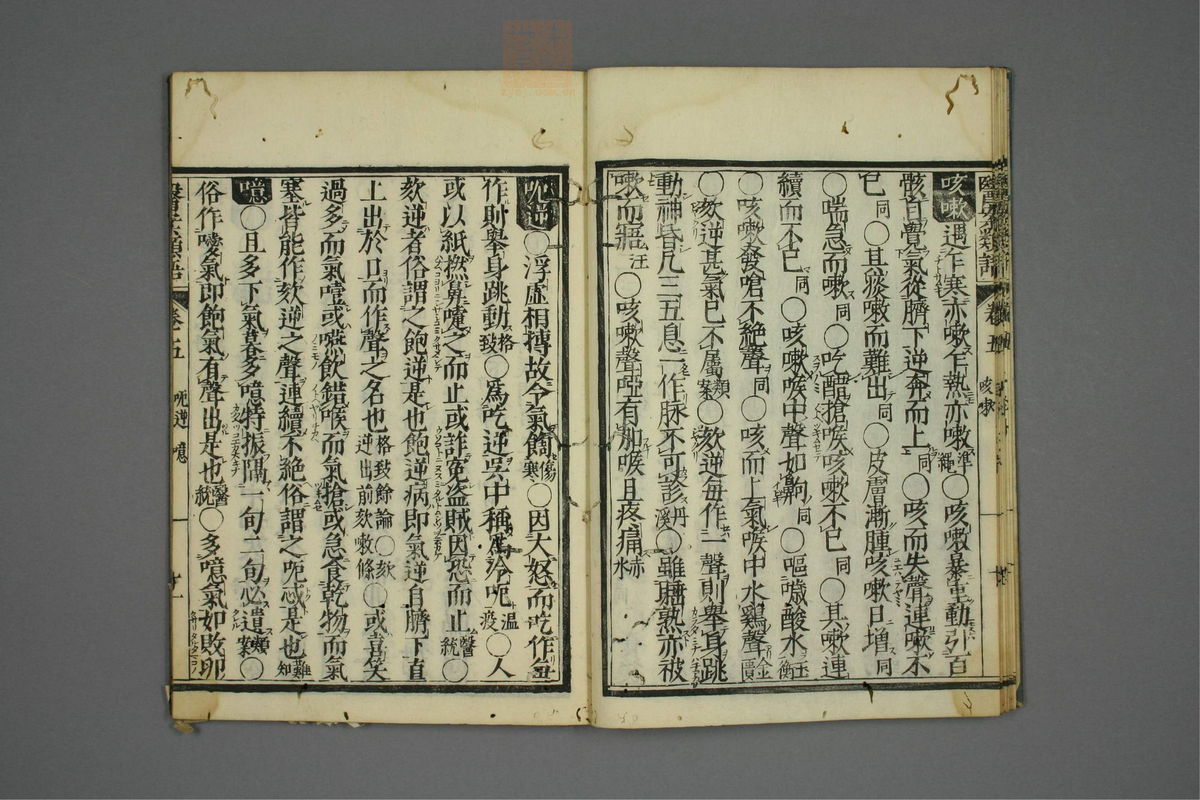 咳嗽 遇乍寒亦嗽乍熱亦嗽 準繩 ○咳嗽暴重動引百
骸自覺氣從臍下逆奔而上 同 ○咳而失聲連嗽不
已 同 ○其痰嗽而難出 同 ○皮膚漸腫咳嗽日增 同
○喘急而嗽 同 ○吃醋搶喉咳嗽不已 同 ○其嗽連
續而不已 同 ○咳嗽喉中聲如鼾 同 ○嘔噦酸水 玉衡
○咳嗽發嗆不絕聲 同 ○咳而上氣喉中水鷄聲 金匱
○欬逆甚氣已不屬 類案 ○欬逆每作一聲則舉身跳
動神昏凡三五息一作脉不可診 丹溪 ○雖聃熟亦被
嗽而寤 汪 ○咳嗽聲啞有如喉且疼痛 赤水
卷五 咳嗽
呃逆 ○浮虛相摶故令氣䬣 傷寒 ○因大怒而吃作每
作則舉身跳動 格致 ○爲吃逆吳中稱爲冷呃 溫疫 ○人
或以紙撚鼻嚏之而止或詐冤盜賊因恐而止 醫統 ○
欬逆者俗謂之飽逆是也飽逆病即氣逆自臍下直
上出於口而作聲之名也 格致餘論 ○欬逆出前欬嗽條 ○或喜笑
過多而氣噎或嚥飲錯喉而氣搶或急食乾物而氣
塞皆能作欬逆之聲連續不絕俗謂之呃忒是也 難知
噫 ○且多下氣暮多噫特振隔一旬二旬必遺 類案 ○
俗作噯氣即飽氣有聲出是也 醫統 ○多噫氣如敗卵
卷五 呃逆 噫